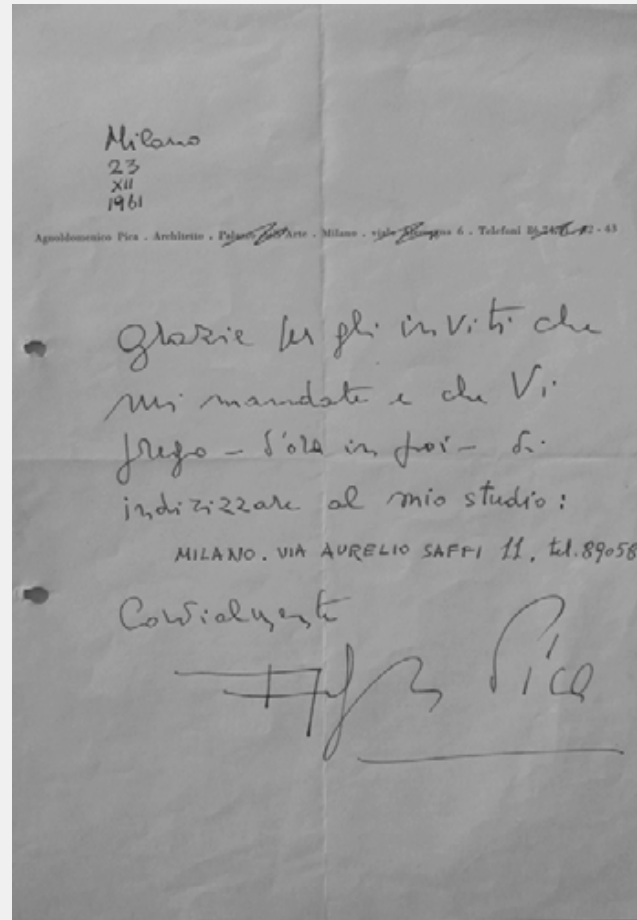 Milano
23
XII
1961
Agnoldomenico Pica . Architetto . Palazzo dell'Arte . Milano . viale 6 . Telefoni - 43
Grazie per gli inviti che
mi mandate e che Vi
prego - d'ora in poi - di
indirizzare al mio studio:
MILANO. VIA AURELIO SAFFI 11, tel. 89058
Cordialmente
Pica